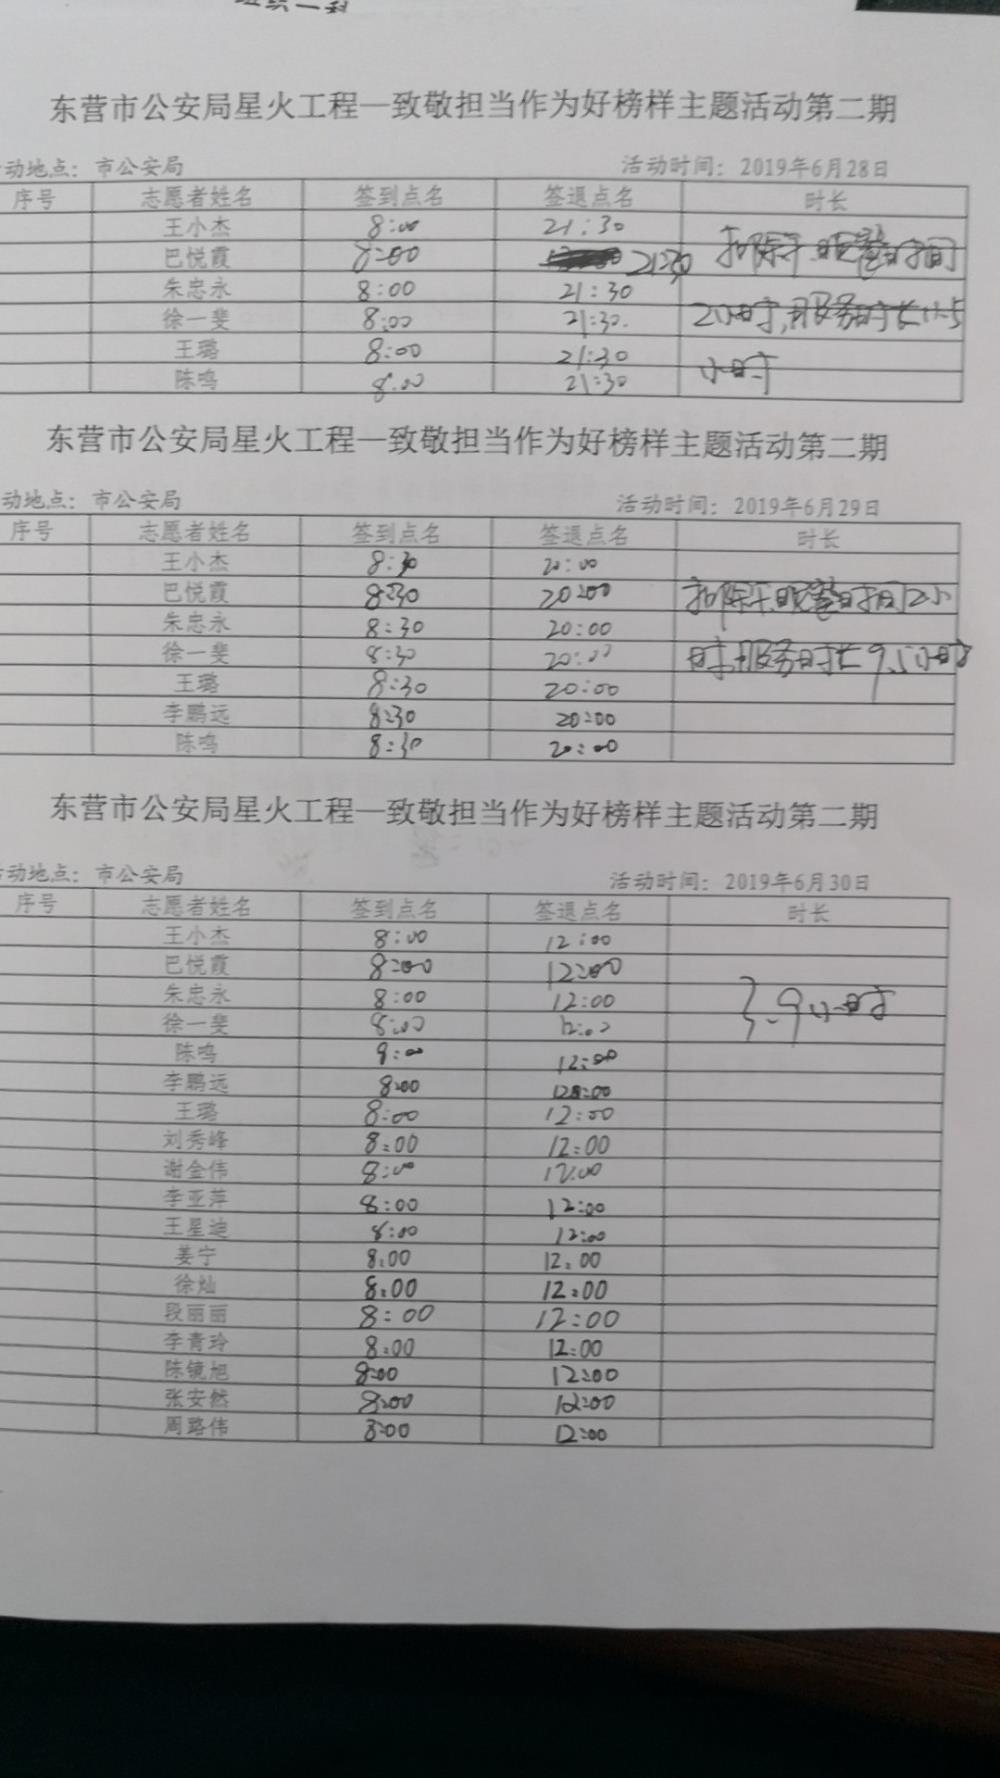 东营市公安局星火工程—致敬担当作为好榜样主题活动第二期
动地点：市公安局 活动时间：2019年6月28日
序号 志愿者姓名 签到点名 签退点名 时长
王小杰 8:00 21:30
巴悦霞 8:00 21:30 扣除午晚餐时间
朱忠永 8:00 21:30
徐一斐 8:00 21:30. 2小时,服务时长11.5
王璐 8:00 21:30
陈鸣 8:00 21:30 小时
东营市公安局星火工程—致敬担当作为好榜样主题活动第二期
动地点：市公安局 活动时间：2019年6月29日
序号 志愿者姓名 签到点名 签退点名 时长
王小杰 8:30 20:00
巴悦霞 8:30 20:00 扣除午晚餐时间2小
朱忠永 8:30 20:00
徐一斐 8:30 20:00 时,服务时长9.5小时
王璐 8:30 20:00
李鹏远 8:30 20:00
陈鸣 8:30 20:00
东营市公安局星火工程—致敬担当作为好榜样主题活动第二期
动地点：市公安局 活动时间：2019年6月30日
序号 志愿者姓名 签到点名 签退点名 时长
王小杰 8:00 12:00
巴悦霞 8:00 12:00
朱忠永 8:00 12:00 3.9小时
徐一斐 8:00 12:00
陈鸣 8:00 12:00
李鹏远 8:00 12:00
王璐 8:00 12:00
刘秀峰 8:00 12:00
谢金伟 8:00 12:00
李亚萍 8:00 12:00
王星迪 8:00 12:00
姜宁 8:00 12:00
徐灿 8:00 12:00
段丽丽 8:00 12:00
李青玲 8:00 12:00
陈镜旭 8:00 12:00
张安然 8:00 12:00
周路伟 8:00 12:00